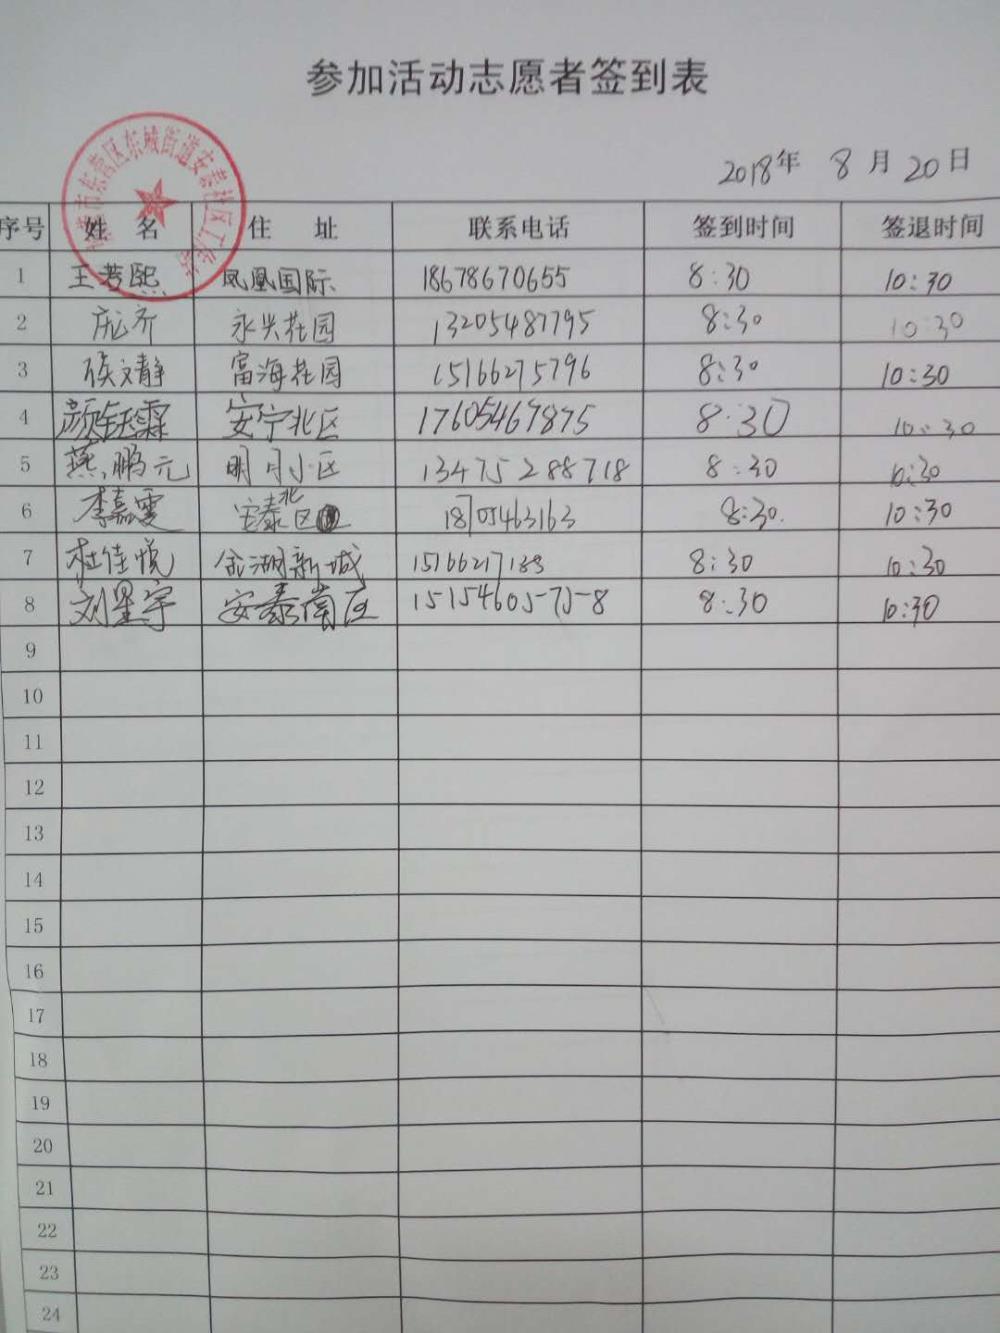 参加活动志愿者签到表
2018年 8月20日
序号 姓 名 住 址 联系电话 签到时间 签退时间
1 王若熙 凤凰国际 18678670655 8:30 10:30
2 庞齐 永兴花园 13205487795 8:30 10:30
3 侯文静 富海花园 15166275796 8:30 10:30
4 颜钰霖 安宁北区 17605467875 8:30 10:30
5 燕鹏元 明月小区 13475288718 8:30 10:30
6 李嘉雯 安泰北区 18705463163 8:30 10:30
7 杜佳悦 金湖新城 8:30 10:30
8 刘星宇 安泰南区 8:30 10:30
9
10
11
12
13
14
15
16
17
18
19
20
21
22
23
24